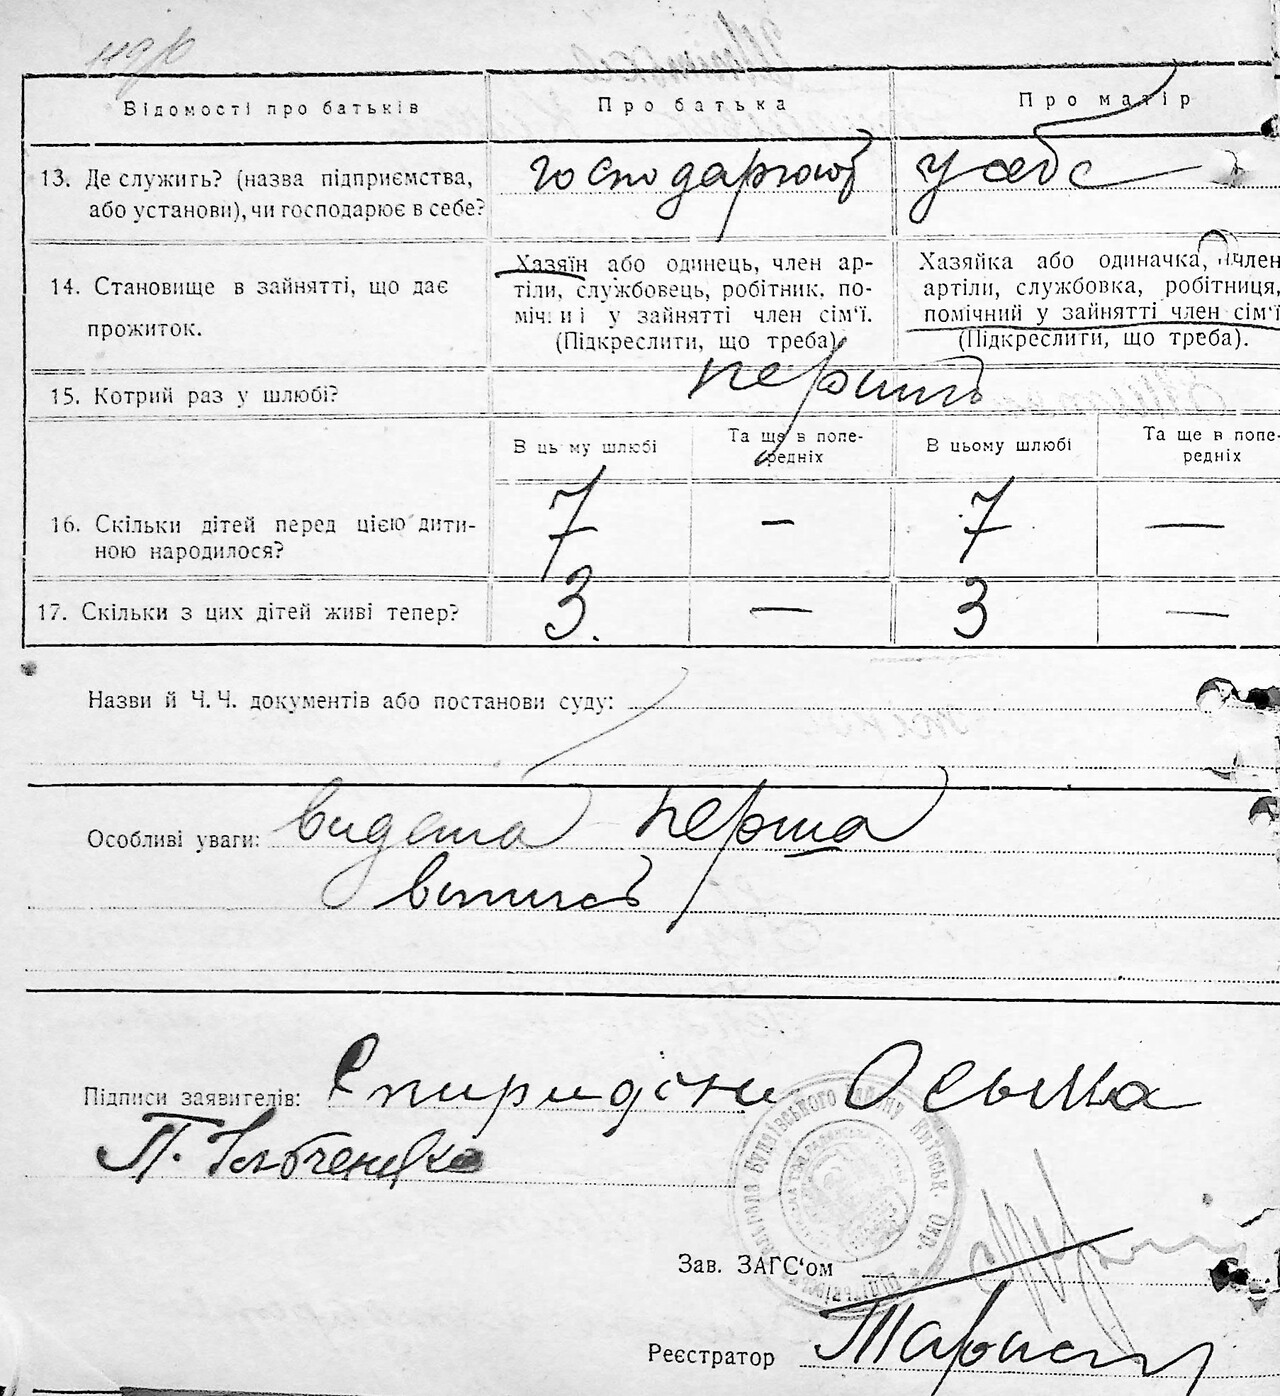 Відомості про батьків
Про батька
Про матір
13. Де служить? (назва підприємства,
або установи), чи господарює в себе?
господарює
у себе
14. Становище в зайнятті, що дає
прожиток.
Хазяїн або одинець, член ар-
тіли, службовець, робітник, по-
мічний у зайнятті член сім'ї.
(Підкреслити, що треба)
Хазяйка або одиначка, член
артіли, службовка, робітниця,
помічний у зайнятті член сім'ї
(Підкреслити, що треба).
15. Котрий раз у шлюбі?
перший
В цьому шлюбі
Та ще в попе-
редніх
В цьому шлюбі
Та ще в попе-
редніх
16. Скільки дітей перед цією дити-
ною народилося?
7 — 7 —
17. Скільки з цих дітей живі тепер?
3. — 3 —
Назви й Ч. Ч. документів або постанови суду:
Особливі уваги: видана перша
випись
Підписи заявителів: Спиридон Осьма
П.
Зав. ЗАГС'ом
Реєстратор